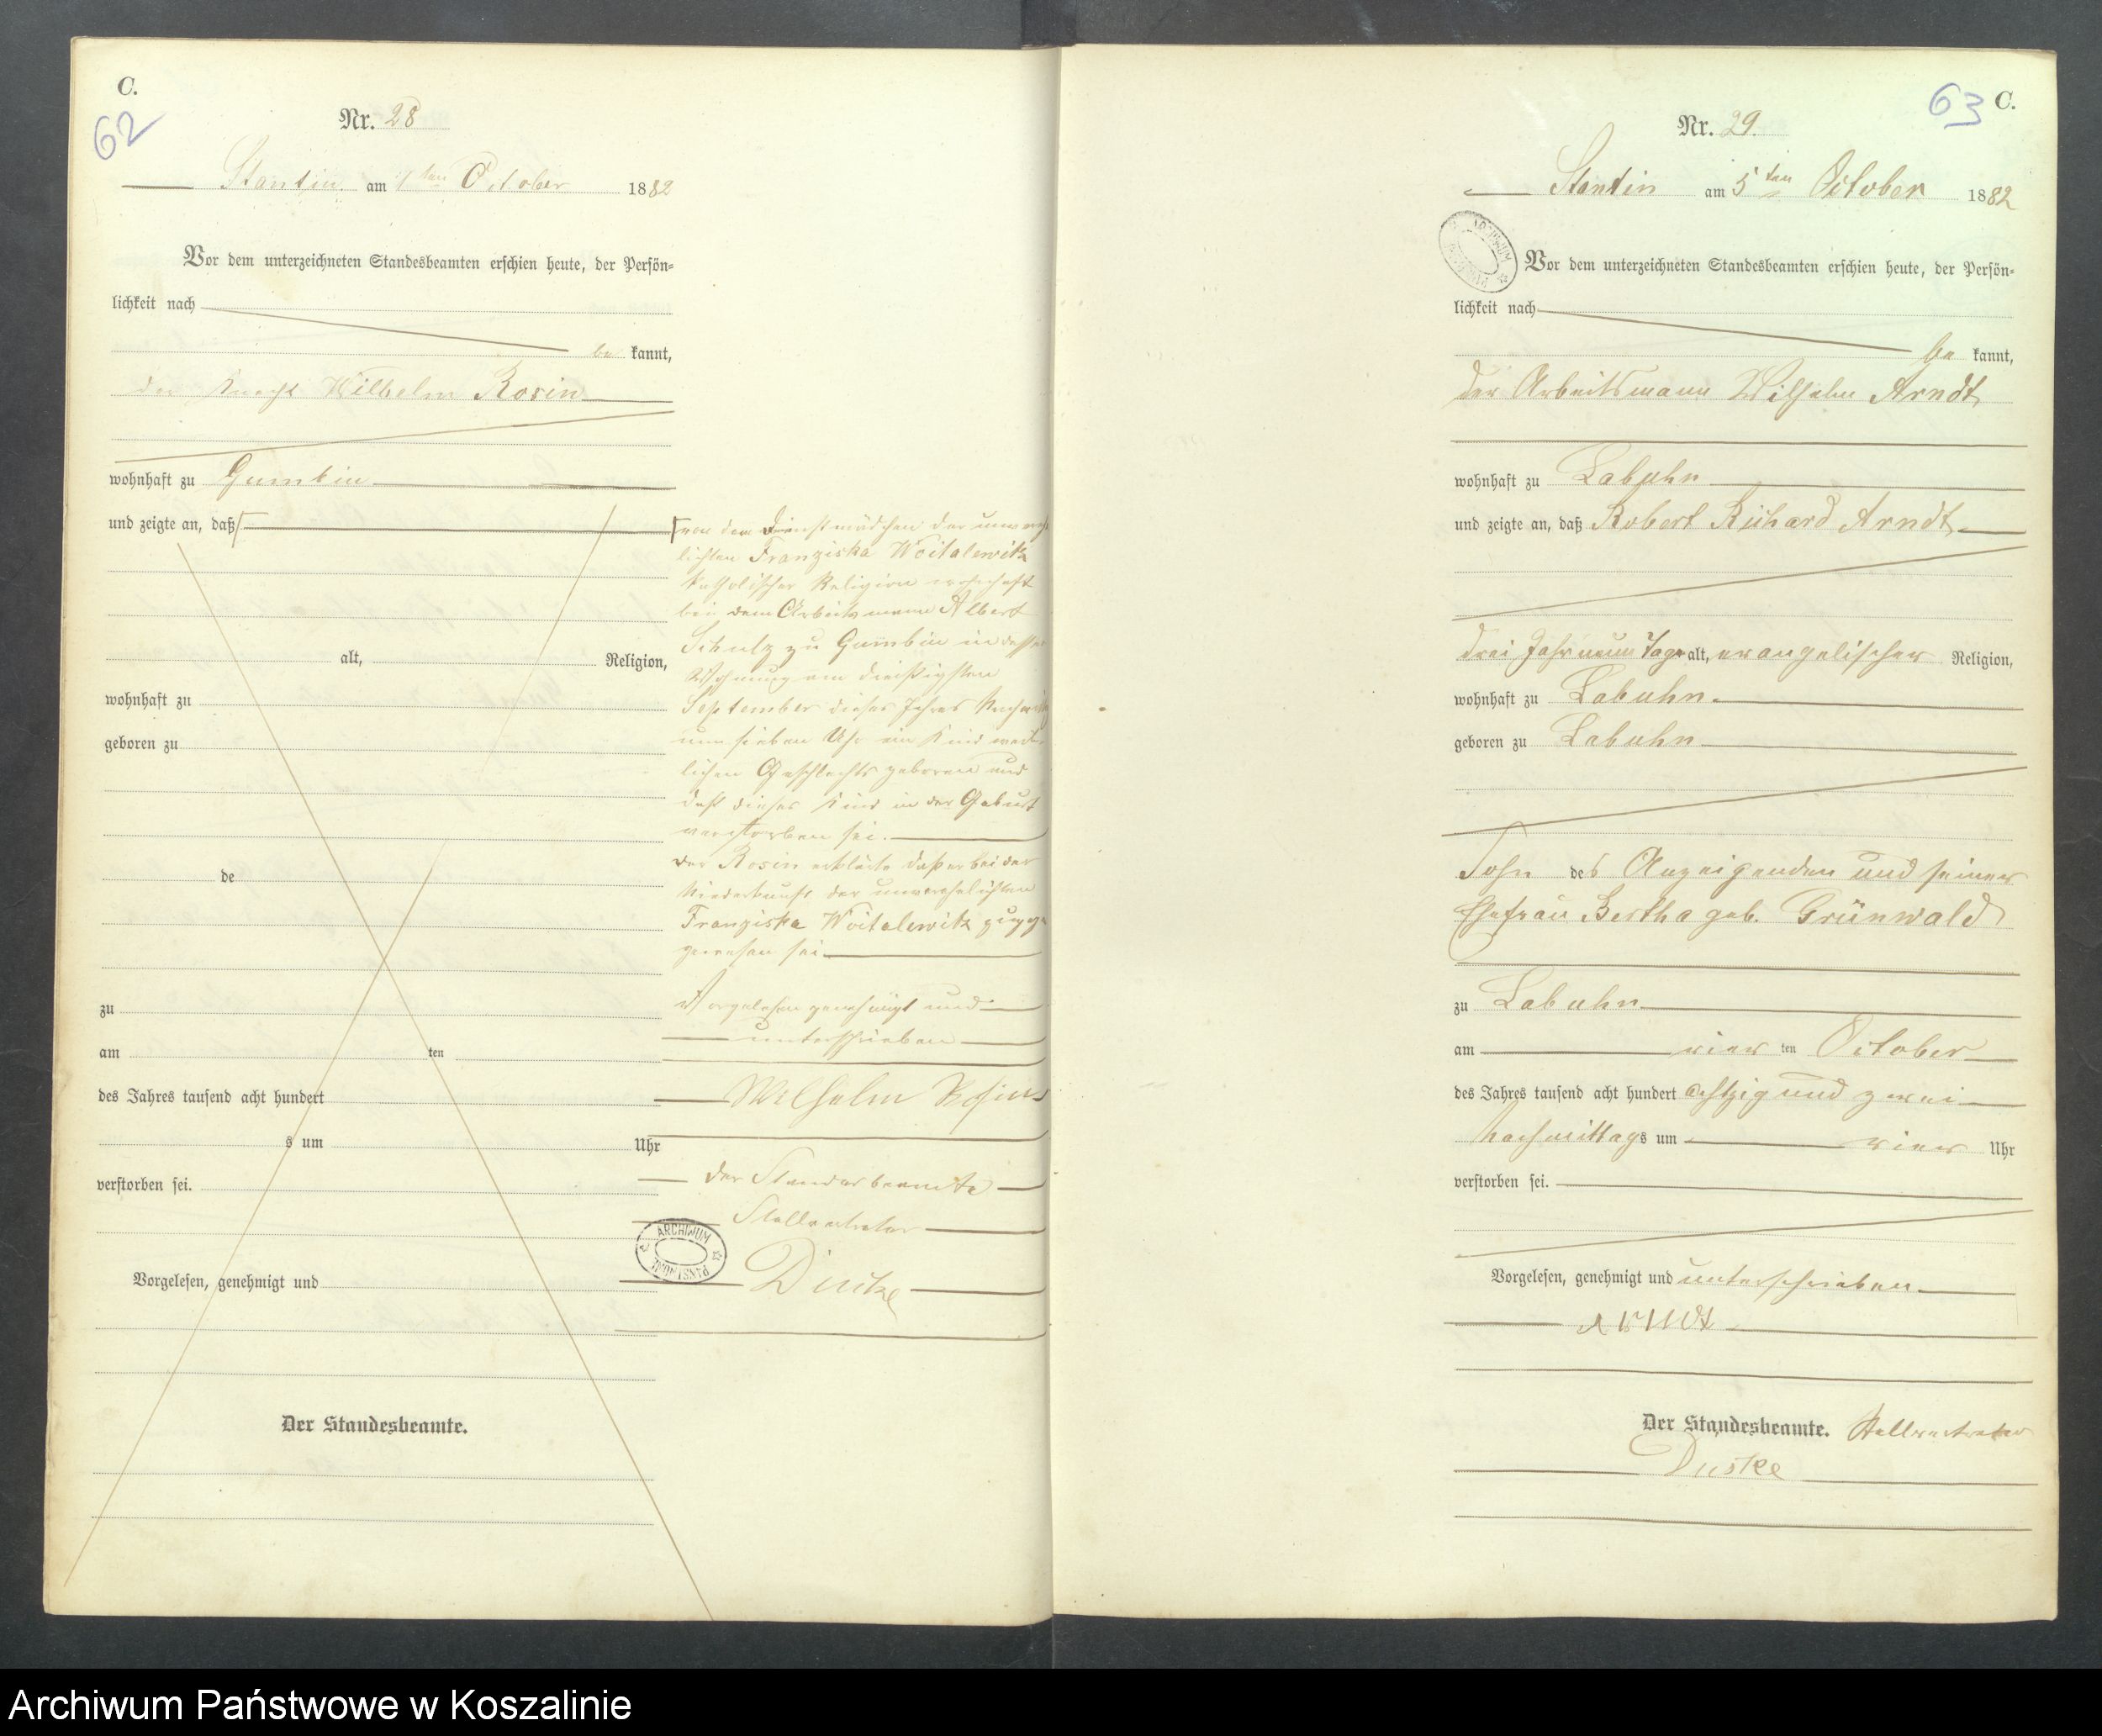 C.
62
Nr. 28
Stantin am 1ten October 1882
Vor dem unterzeichneten Standesbeamten erschien heute, der Persön-
lichkeit nach
be kannt,
der Knecht Wilhelm Rosin
wohnhaft zu Gumbin
und zeigte an, daß
alt, Religion,
wohnhaft zu
geboren zu
de
zu
am ten
des Jahres tausend acht hundert
s um Uhr
verstorben sei.
Vorgelesen, genehmigt und
Der Standesbeamte.
von dem Dienstmädchen der unvereh
lichten Franziska Woitalewitz
katholischer Religion wohnhaft
bei dem Arbeitsmann Albert
Schulz zu Gumbin in dessen
Wohnung am dreißigsten
September dieses Jahres
um sieben Uhr ein Kind weib
lichen Geschlechts geboren und
daß dieses Kind in der Geburt
verstorben sei.
der Rosin erklärte daß er bei der
Niederkunft der unverehelichten
Franziska Woitalewitz zuge
gewesen sei
Vorgelesen genehmigt und
unterschrieben
Wilhelm Rosin
der Standesbeamte
Stellvertreter
ARCHIWUM PAŃSTWOWE
63 C.
Nr. 29.
Stantin am 5ten October 1882
Vor dem unterzeichneten Standesbeamten erschien heute, der Persön-
lichkeit nach
be kannt,
der Arbeitsmann Wilhelm Arndt
wohnhaft zu Labuhn
und zeigte an, daß Robert Richard Arndt
drei Jahr neun Tage alt, evangelischer Religion,
wohnhaft zu Labuhn
geboren zu Labuhn
Sohn des Anzeigenden und seiner
Ehefrau Bertha geb. Grünwald
zu Labuhn
am vier ten October
des Jahres tausend acht hundert achtzig und zwei
Nachmittags um vier Uhr
verstorben sei.
Vorgelesen, genehmigt und unterschrieben
Arndt
Der Standesbeamte. Stellvertreter
Duske
Archiwum Państwowe w Koszalinie